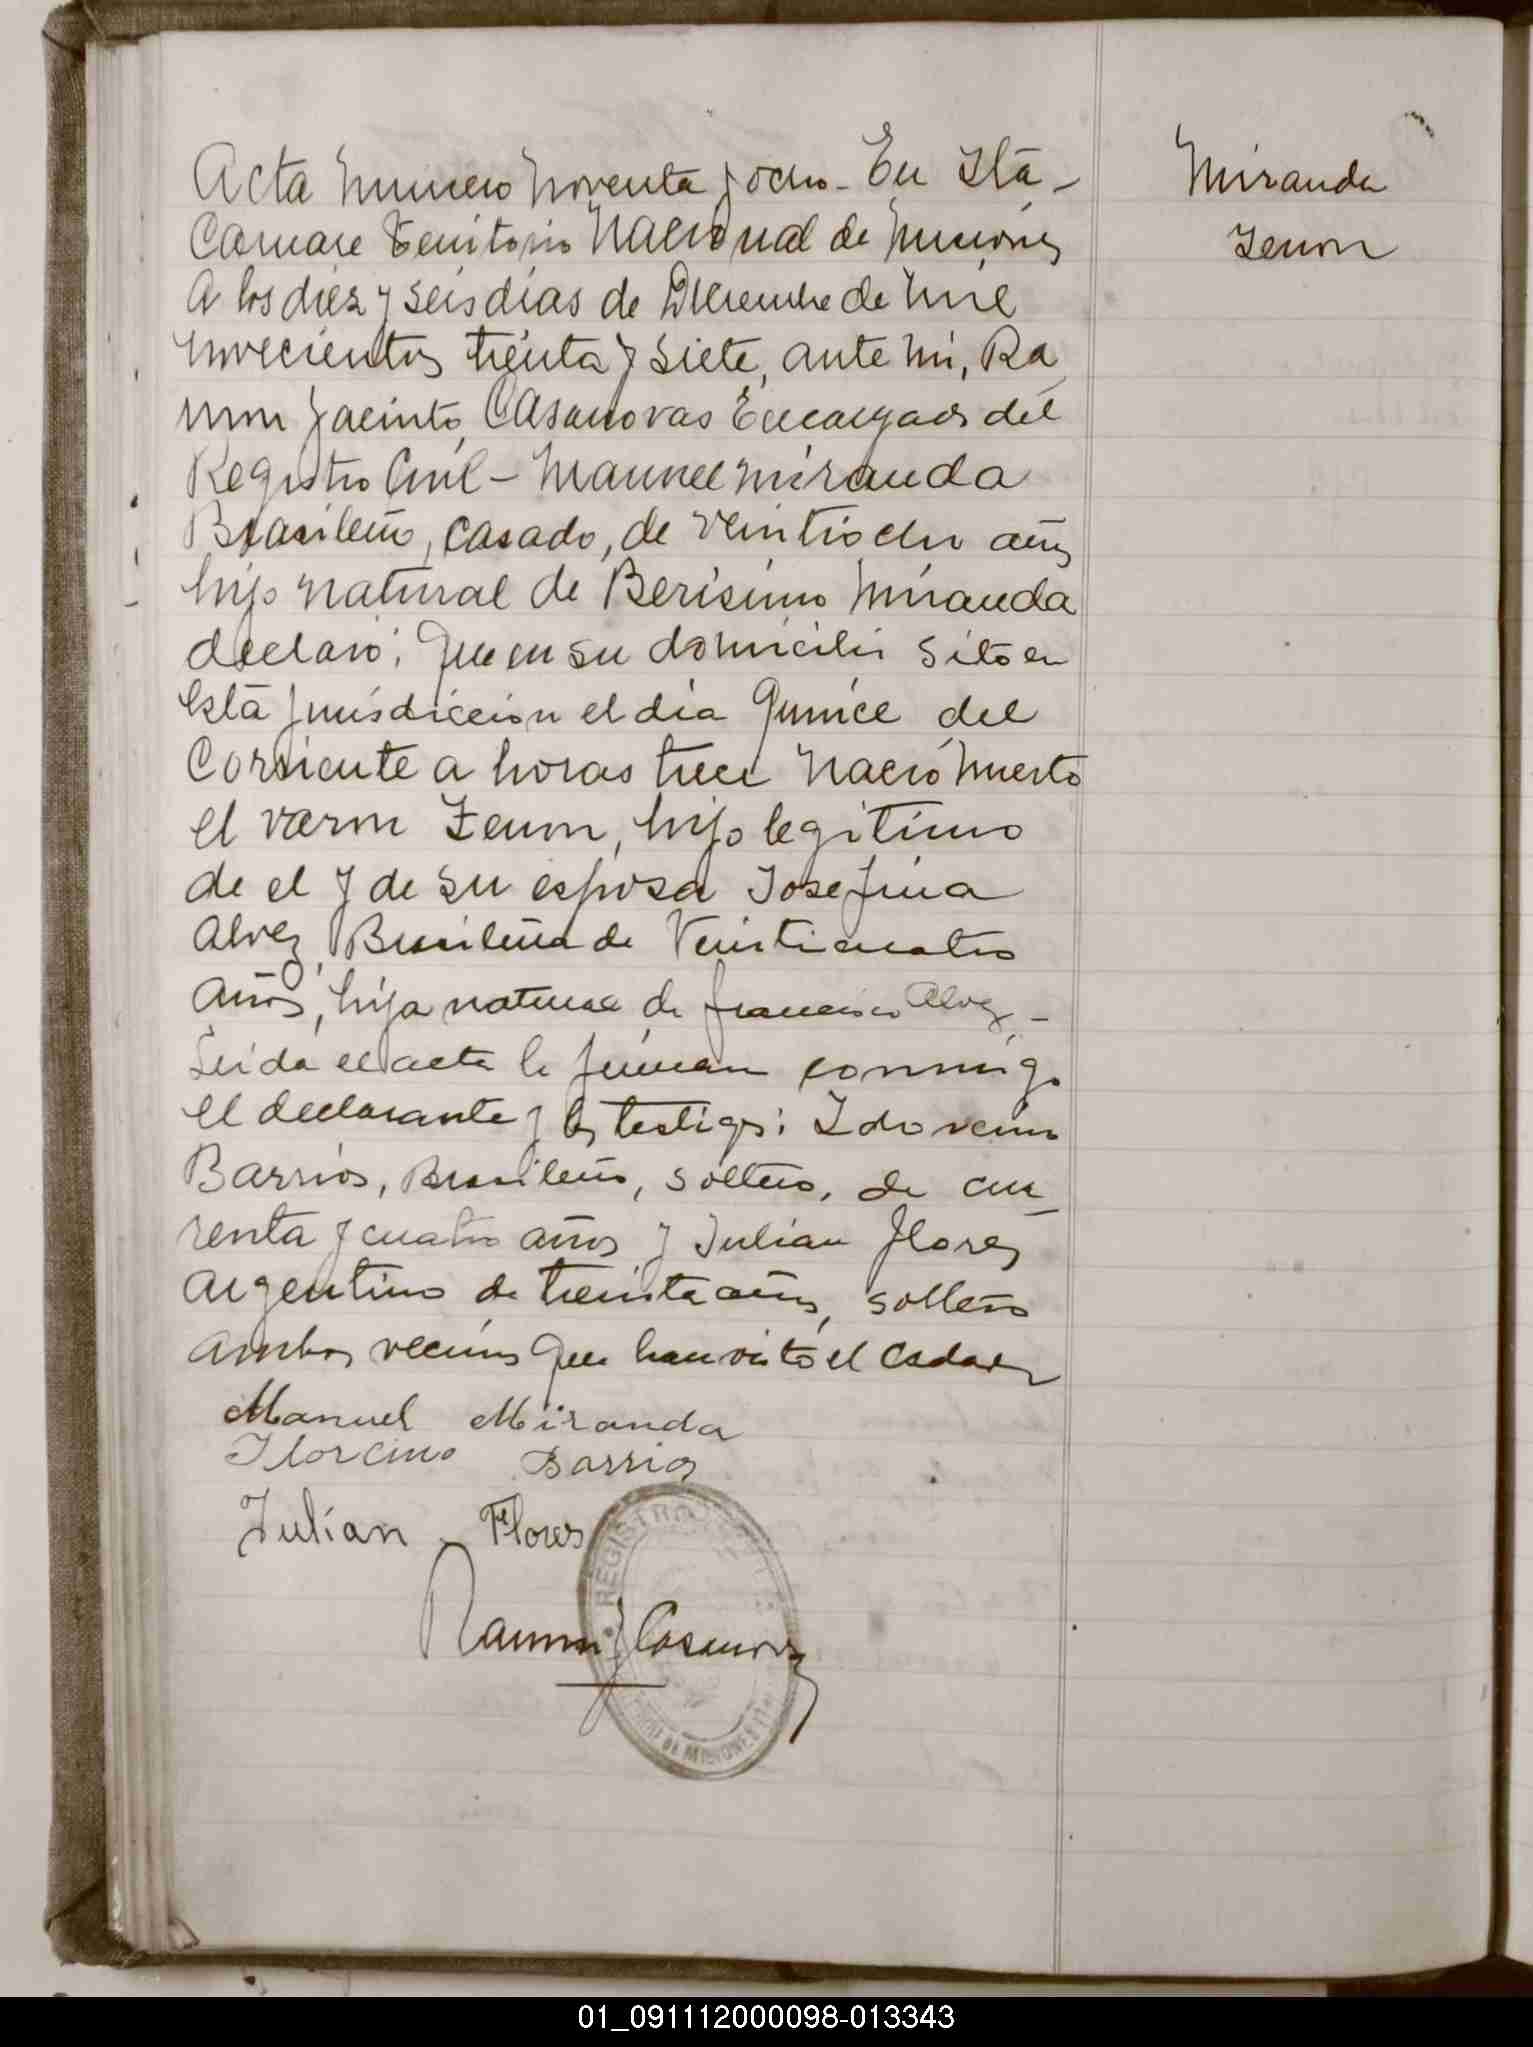 Acta Numero Noventa y ocho - En Itá -
Miranda
Zenon
Caruare Territorio Nacional de Misiones
A los diez y seis dias de Diciembre de Mil
novecientos treinta y siete, ante mi, Ra
mon Jacinto Casanovas Encargado del
Registro Civil - Manuel Miranda
Brasileño, casado, de veintiocho años
hijo natural de Berisimo Miranda
declaró; Que en su domicilio sito en
esta jurisdiccion el dia Quince del
Corriente a horas trece Nació Muerto
el varon Zenon, hijo legitimo
de el y de su esposa Josefina
Alvez, Brasileña de Veinticuatro
Años, hija natural de Francisco Alvez -
Leida el acta la firman conmigo
el declarante y los testigos:
Barrios, Brasileño, soltero, de cua_
renta y cuatro años y Julian Flores
Argentino de treinta años, soltero
Ambos vecinos que han visto el Cadaver
Manuel Miranda
Barrios
Julian Flores
Ramon J Casanovas
REGISTRO
DE MISIONES
01_091112000098-013343